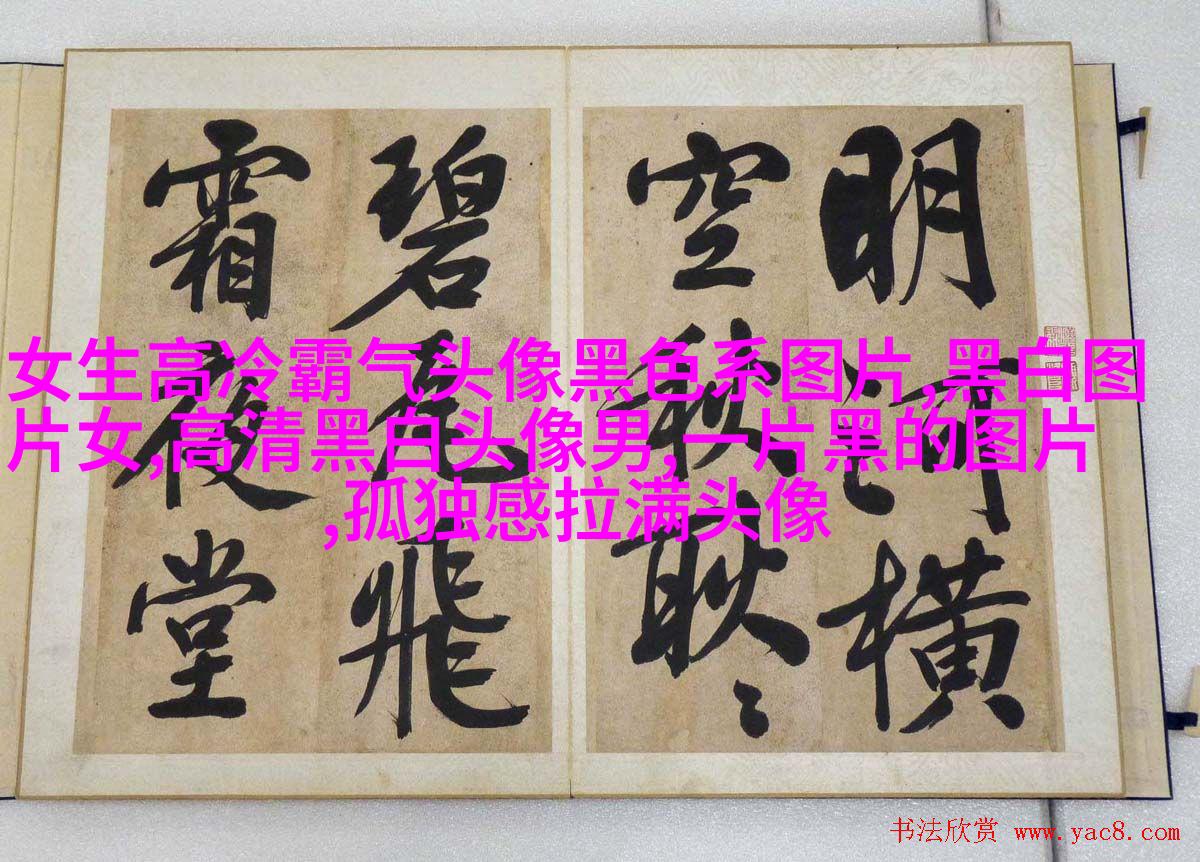 明河橫
空秋耿〻
碧瓦飛
霜夜堂
女生高冷霸气头像黑色系图片,黑白图
片女,高清黑白头像男,一片黑的图片
,孤独感拉满头像
书法欣赏 www.yac8.com